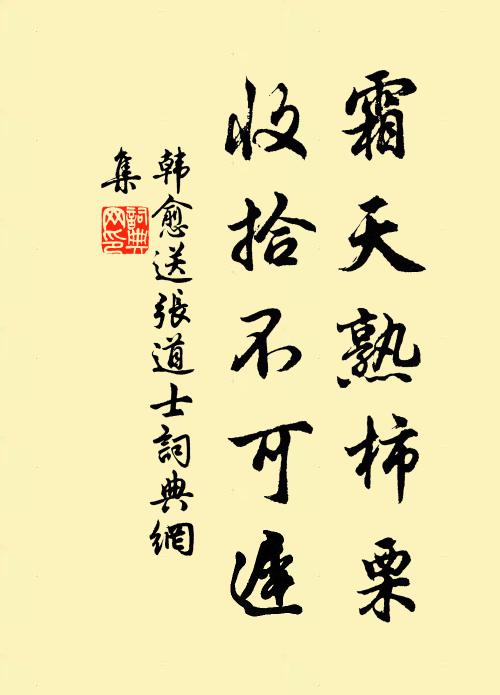 霜天熟柿栗
收拾不可遲
韓愈送張道士詞典網
集
詞典網印